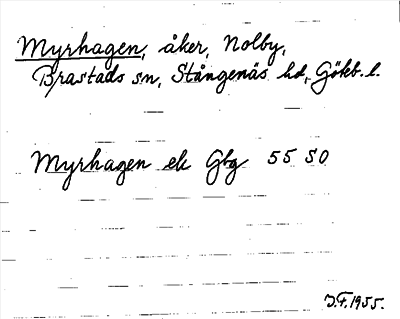 Myrhagen, åker, Nolby,
Brastads sn, Stångenäs hd, Göteb. l.
Myrhagen ek Gbg 55 SO
J.F. 1955.